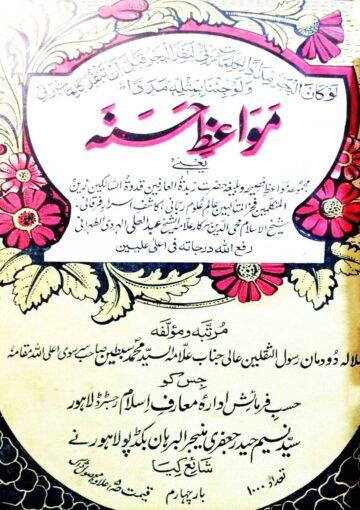 لو كان البحر مدادا لكلمات ربي لنفد البحر قبل ان تنفد كلمات ربي
ولو جئنا بمثله مددا
مَوَاعظِ حَسَنہ
یعنی
مجموعۂ مواعظ فصیحہ و بلیغہ حضرت زبدۃ العارفین قدوۃ السالکین زین
المتکلمین فخر المتألہین عالم علوم ربانی کاشف اسرار فرقانی
شیخ الاسلام محی الدین سرکار علامہ الشیخ عبد العلی الہروی الطہرانی
رفع اللہ درجاتہ فی اعلیٰ علیین
مرتبہ و مؤلفہ
سلالہ دودمان رسول الثقلین عالی جناب علامہ السید محمد سبطین صاحب سرسوی اعلی اللہ مقامہ
جس کو
حسب فرمائش ادارۂ معارف اسلام رجسٹرڈ لاہور
سید نسیم حیدر جعفری منیجر البرہان بکڈپو لاہور نے
شائع کیا
تعداد ۱۰۰۰
بار چہارم
قیمت علاوہ محصول ڈاک